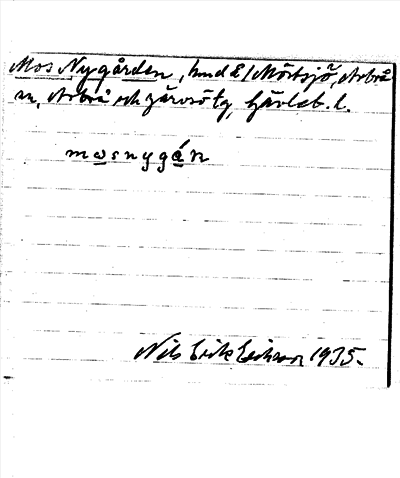 Mos Nygården, hmd å / Mörtsjö, Arbrå
sn, Arbrå och Järvsö tg, Gävleb. l.
mosnygá̱n
Nils Erik Eriksson 1935.